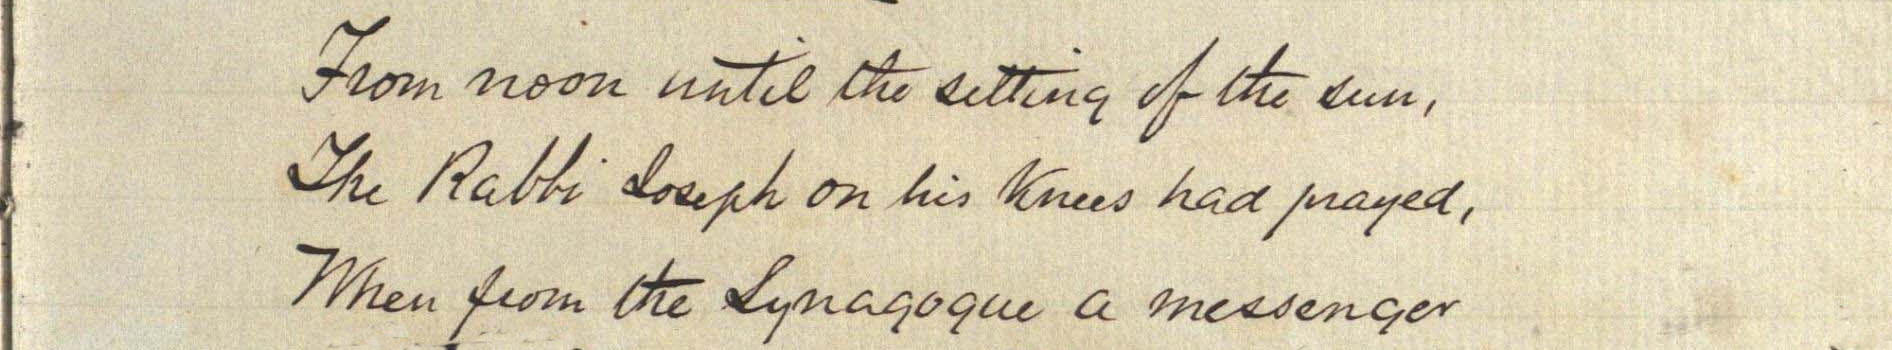 From noon until the setting of the sun,
The Rabbi Joseph on his Knees had prayed,
When from the Synagogue a messenger